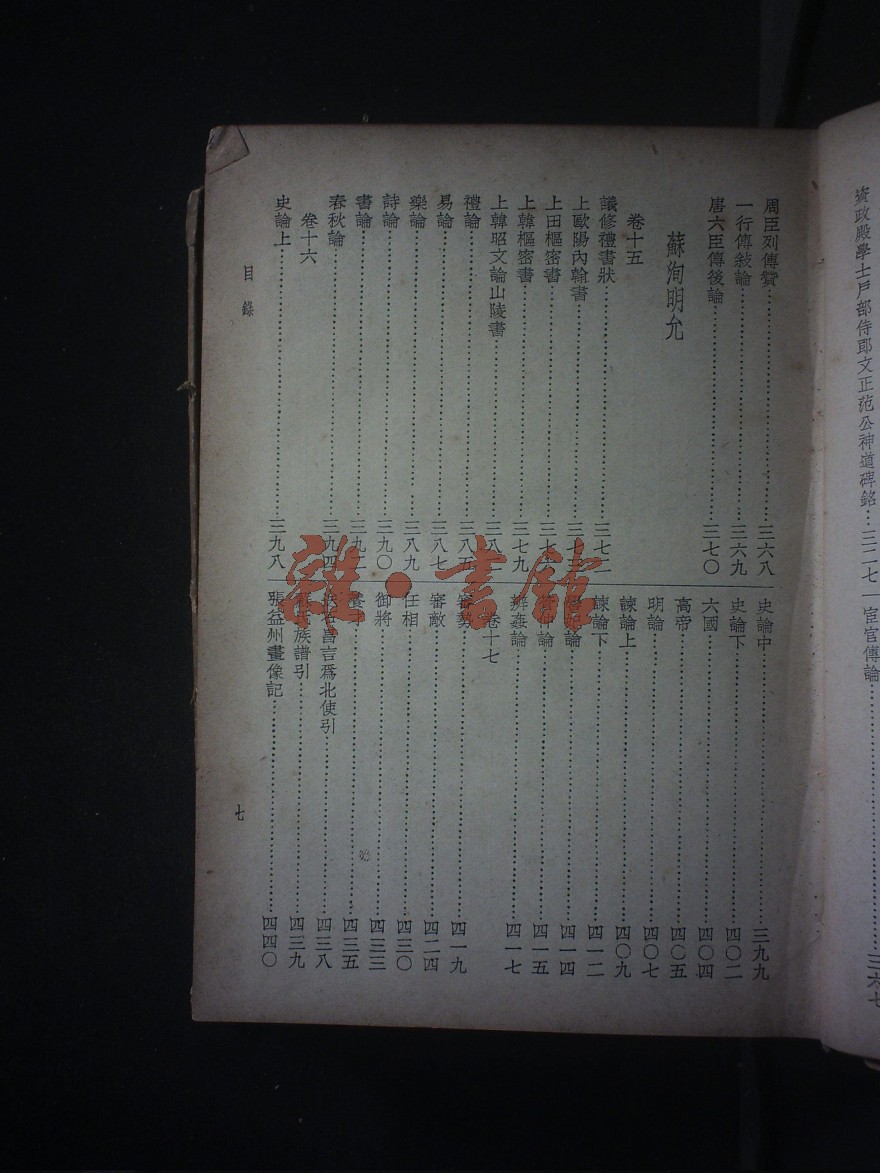 資政殿學士戶部侍郎文正范公神道碑銘…三二七
宦官傳論…三六七
周臣列傳贊…三六八
一行傳敍論…三六九
唐六臣傳後論…三七〇
蘇洵明允
卷十五
議修禮書狀…三七二
上歐陽內翰書…三七
上田樞密書…三七
上韓樞密書…三七九
上韓昭文論山陵書…三八
禮論…三八五
易論…三八七
樂論…三八九
詩論…三九〇
書論…三九
春秋論…三九四
卷十六
史論上…三九八
史論中…三九九
史論下…四〇二
六國…四〇四
高帝…四〇五
明論…四〇七
諫論上…四〇九
諫論下…四一二
論…四一四
論…四一五
辨姦論…四一七
卷十七
審勢…四一九
審敵…四二四
任相…四三〇
御將…四三三
四三五
昌言爲北使引…四三八
族譜引…四三九
張益州畫像記…四四〇
目錄
七
雜·書館